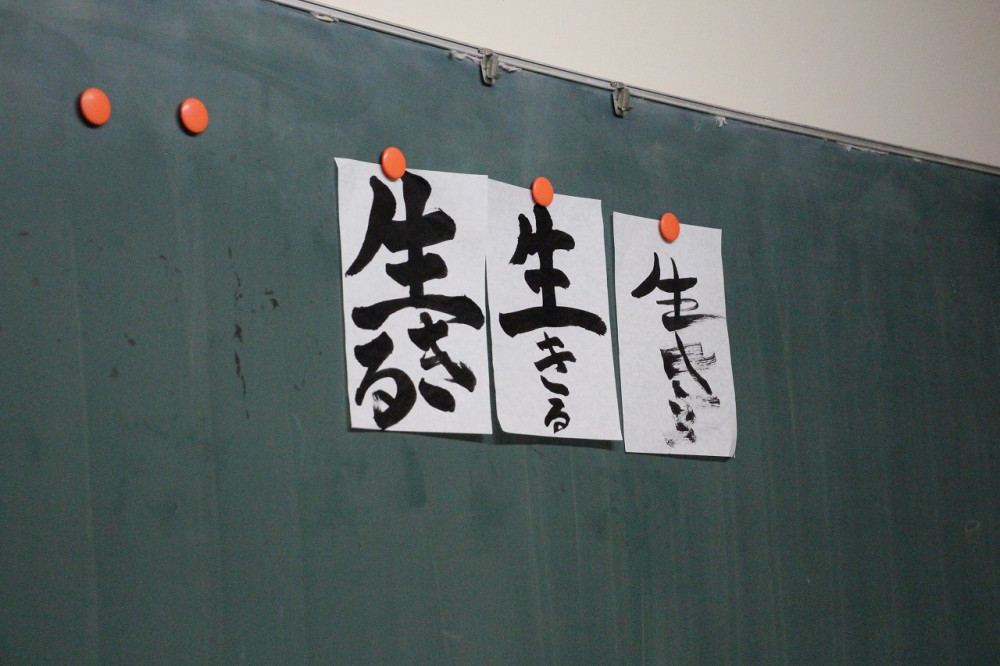 生きる
生きる
生